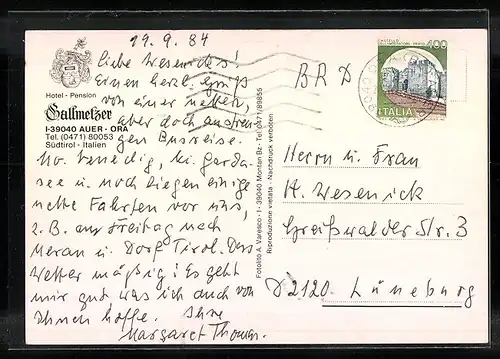 19. 9. 84
Liebe Wesenicks!
Einen herzl. Gruß
von einer netten,
aber doch anstren
gen Busreise.
Mo. Venedig, Mi. Garda-
see u. noch liegen einige
nette Fahrten vor uns,
z. B. am Freitag nach
Meran u. Dorf Tirol. Das
Wetter mäßig! Es geht
mir gut, was ich auch von
Ihnen hoffe. Ihre
Margaret Thomsen.
Hotel - Pension
Gallmetzer
I-39040 AUER - ORA
Tel. (0471) 80053
Südtirol - Italien
Fotolito A. Varesco - I - 39040 Montan Bz - Tel. 0471/89855
Riproduzione vietata - Nachdruck verboten
400
ITALIA
39040
BRD
Herrn u. Frau
H. Wesenick
Greifswalder Str. 3
D 2120 Lüneburg